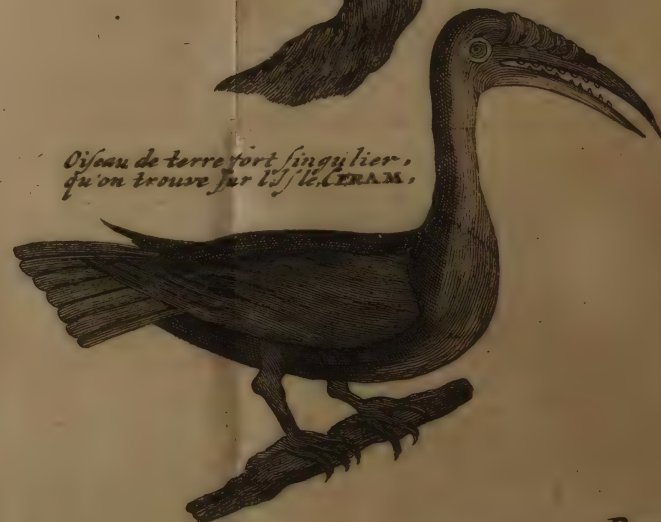 Oiſeau de terre fort ſingulier,
qu'on trouve ſur l'Iſle, CERAM,